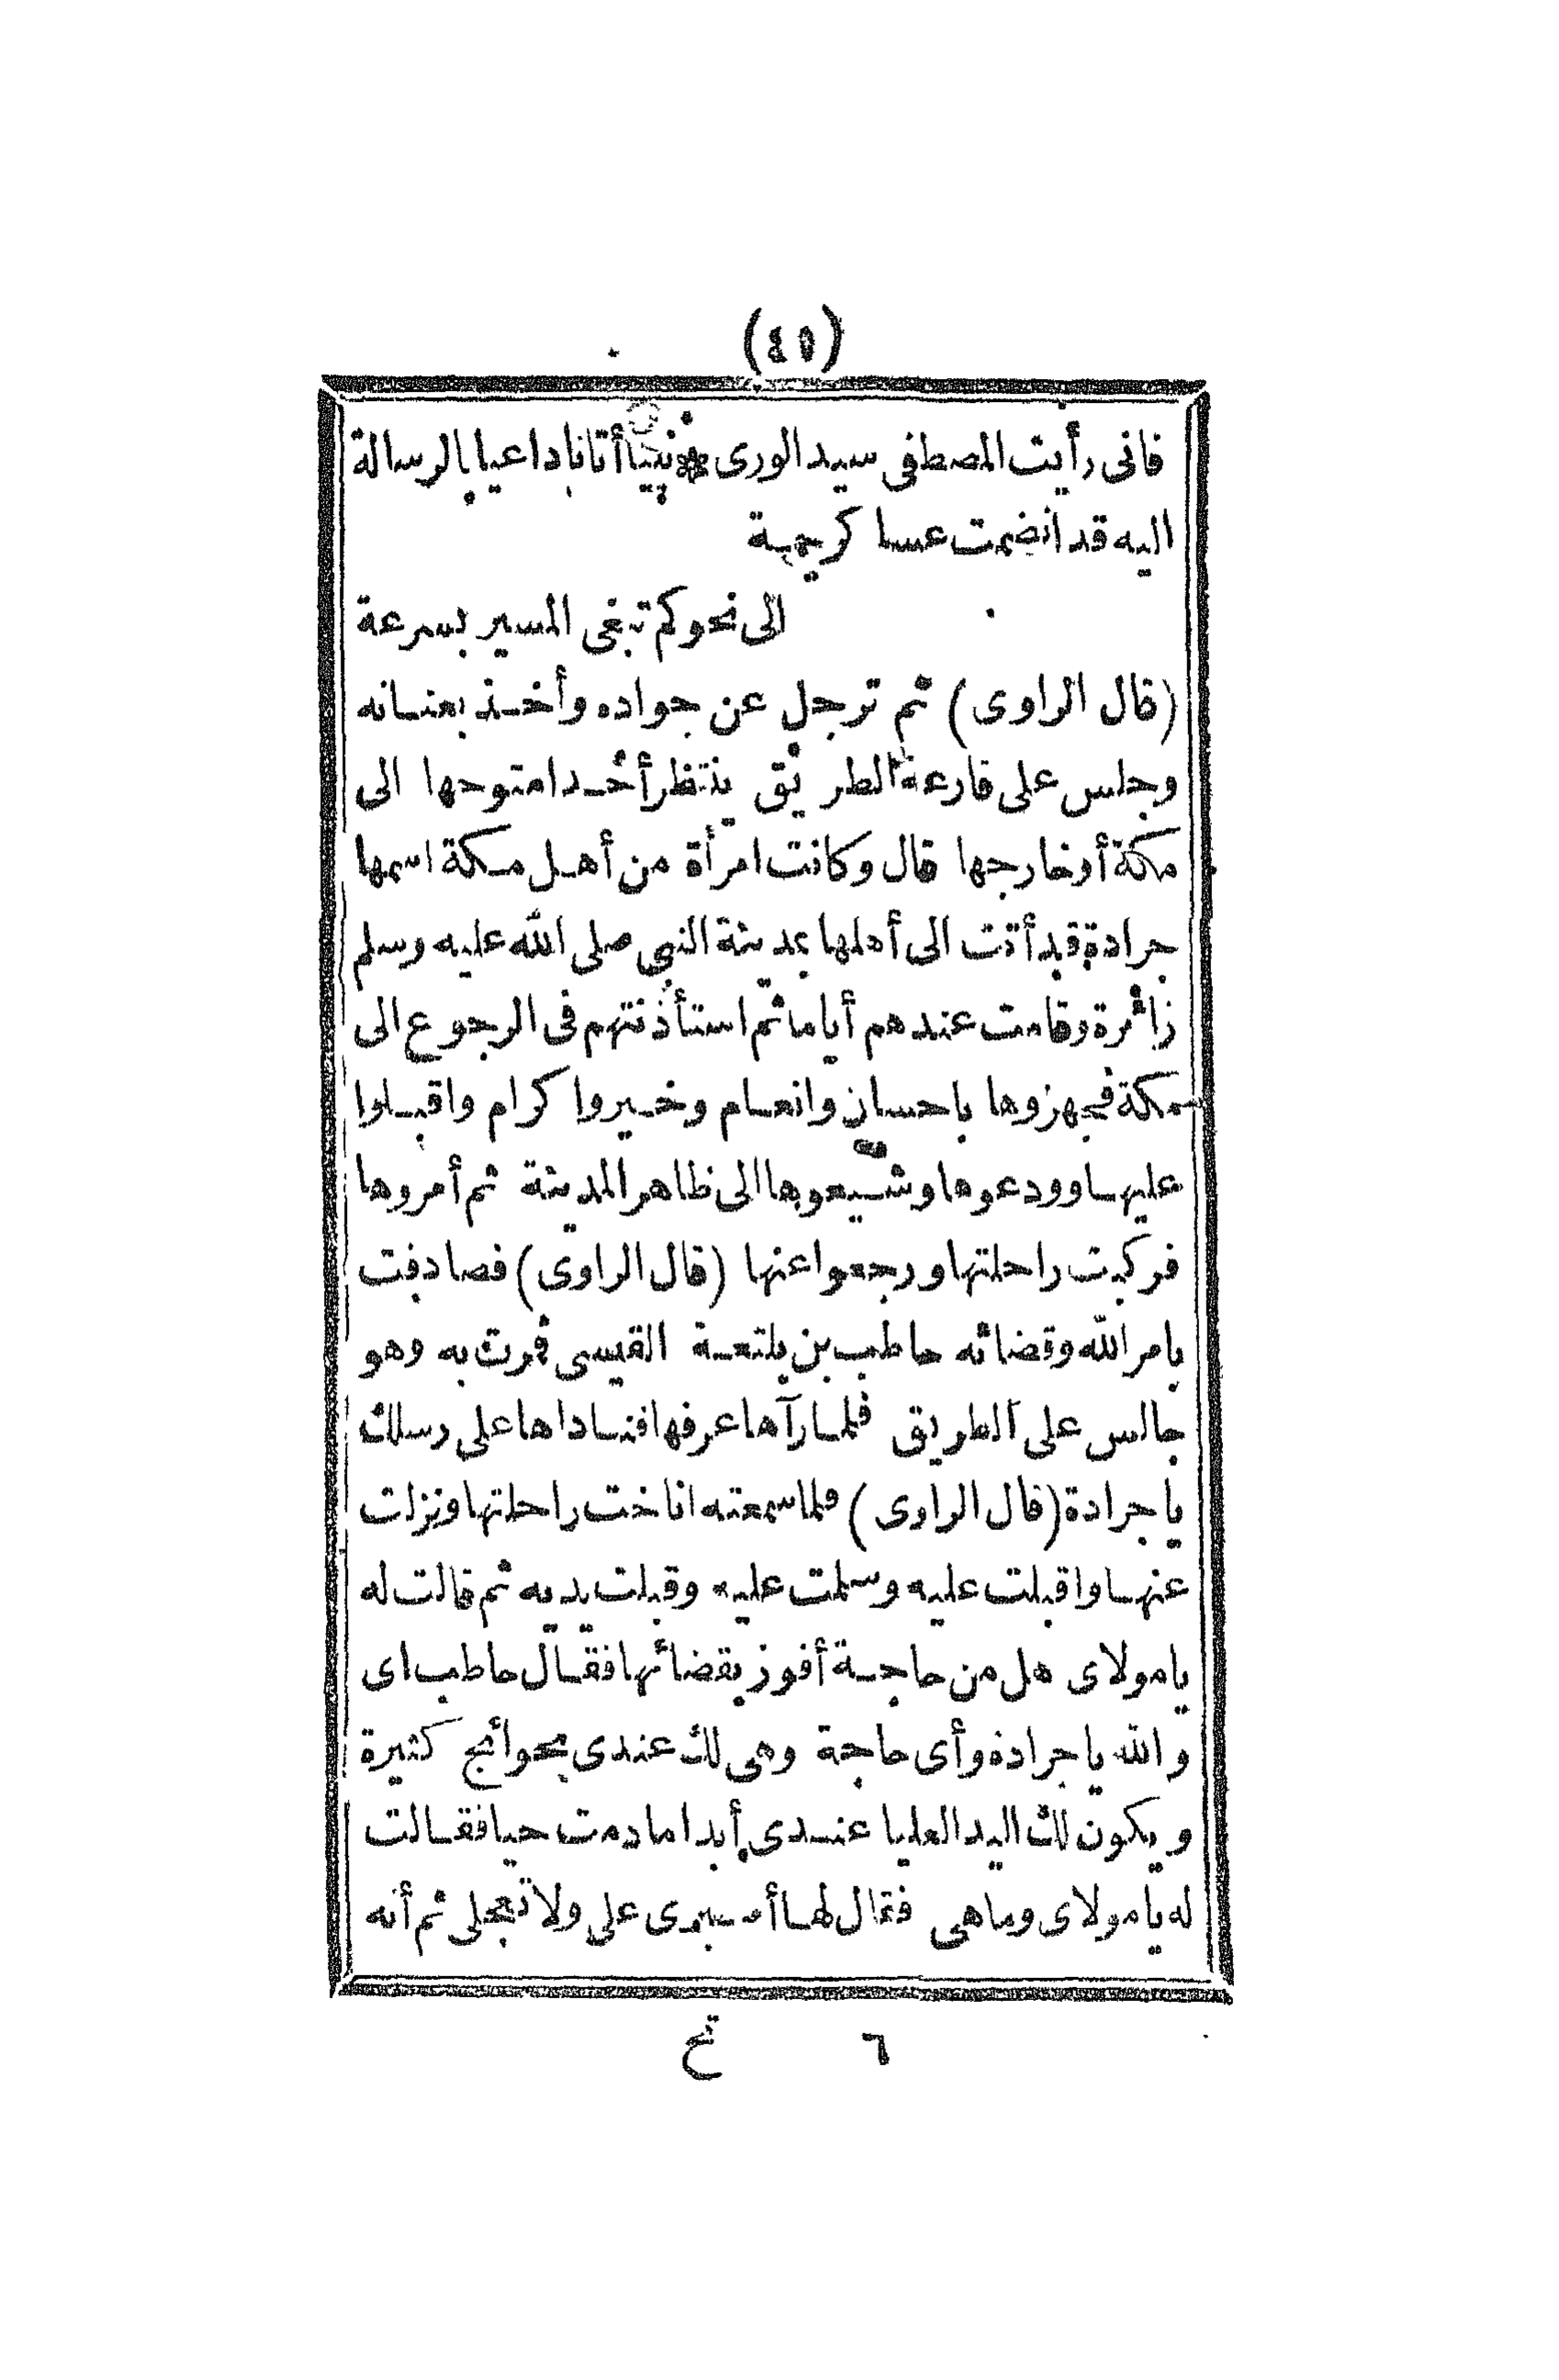 (٤٥)
فانى رأيت المصطفى سيد الورى * نبيا أتانا داعيا بالرسالة
اليه قد انضمت عسا كريمية
الى نحوكم تبغى المسير بسرعة
(قال الراوى) ثم ترجل عن جواده وأخذ بعنانه
وجلس على قارعة الطريق ينتظر أحدا متوجها الى
مكة أو خارجها قال وكانت امرأة من أهل مكة اسمها
جرادة قد أتت الى أهلها بمدينة النبي صلى الله عليه وسلم
زائرة وقامت عندهم أياما ثم استأذنتهم فى الرجوع الى
مكة فجهزوها باحسان وانعام وخير واكرام واقبلوا
عليها وودعوها وشيعوها الى ظاهر المدينة ثم أمروها
فركبت راحلتها ورجعوا عنها (قال الراوى) فصادفت
بامر الله وقضائه حاطب بن بلتعة القيسى فمرت به وهو
جالس على الطريق فلما رآها عرفها فناداها على رسلك
يا جرادة (قال الراوى) فلما سمعته اناخت راحلتها ونزلت
عنها واقبلت عليه وسلمت عليه وقبلت يديه ثم قالت له
يا مولاى هل من حاجة أفوز بقضائها فقال حاطب اى
والله يا جرادة وأى حاجة وهى لك عندى بحوائج كثيرة
ويكون لك اليد العليا عندى أبدا ما دمت حيا فقالت
له يا مولاى وما هى فقال لها أصبرى على ولا تعجلى ثم أنه
٦ فتح